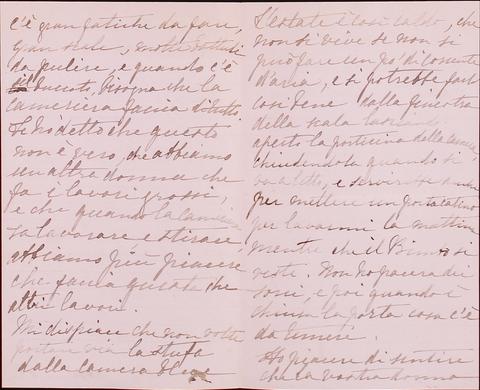 c'è gran fatiche da fare,
gran scale, molti vestiti
da pulire, e quando c'è
bucato, bisogna che la
cameriera faccia di tutto.
Le ho detto che questo
non è vero, che abbiamo
un altra donna che
fa i lavori grossi,
e che quando la cameriera
sa lavorare e stirare
abbiamo più piacere
che faccia questo che
altri lavori.
Mi dispiace che non volete
portare via la stufa
dalla camera
L'estate è così caldo, che
non si vive se non si
può fare un po' di corrente
d'aria, e si potrebbe far
così bene dalla finestra
della scala lasciando
aperto la porticina della camera
chiudendola quando si
va a letto, e
per mettere un portacatino
per lavarmi la mattina
mentre che il Bimbo si
veste. Non ho paura dei
topi, e poi quando è
chiusa la porta cosa c'è
da temere.
Ho piacere di sentire
che la vostra donna